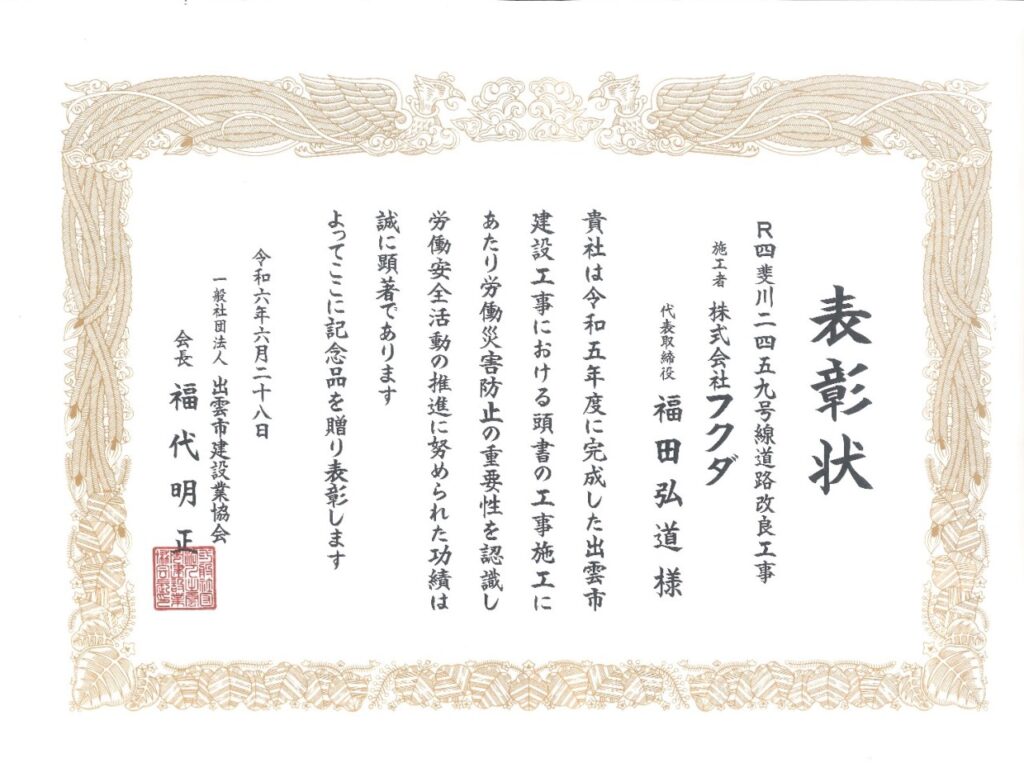 表彰状
R四斐川二四五九号線道路改良工事
施工者 株式会社フクダ
代表取締役 福田弘道様
貴社は令和五年度に完成した出雲市
建設工事における頭書の工事施工に
あたり労働災害防止の重要性を認識し
労働安全活動の推進に努められた功績は
誠に顕著であります
よってここに記念品を贈り表彰します
令和六年六月二十八日
一般社団法人 出雲市建設業協会
会長 福代明正